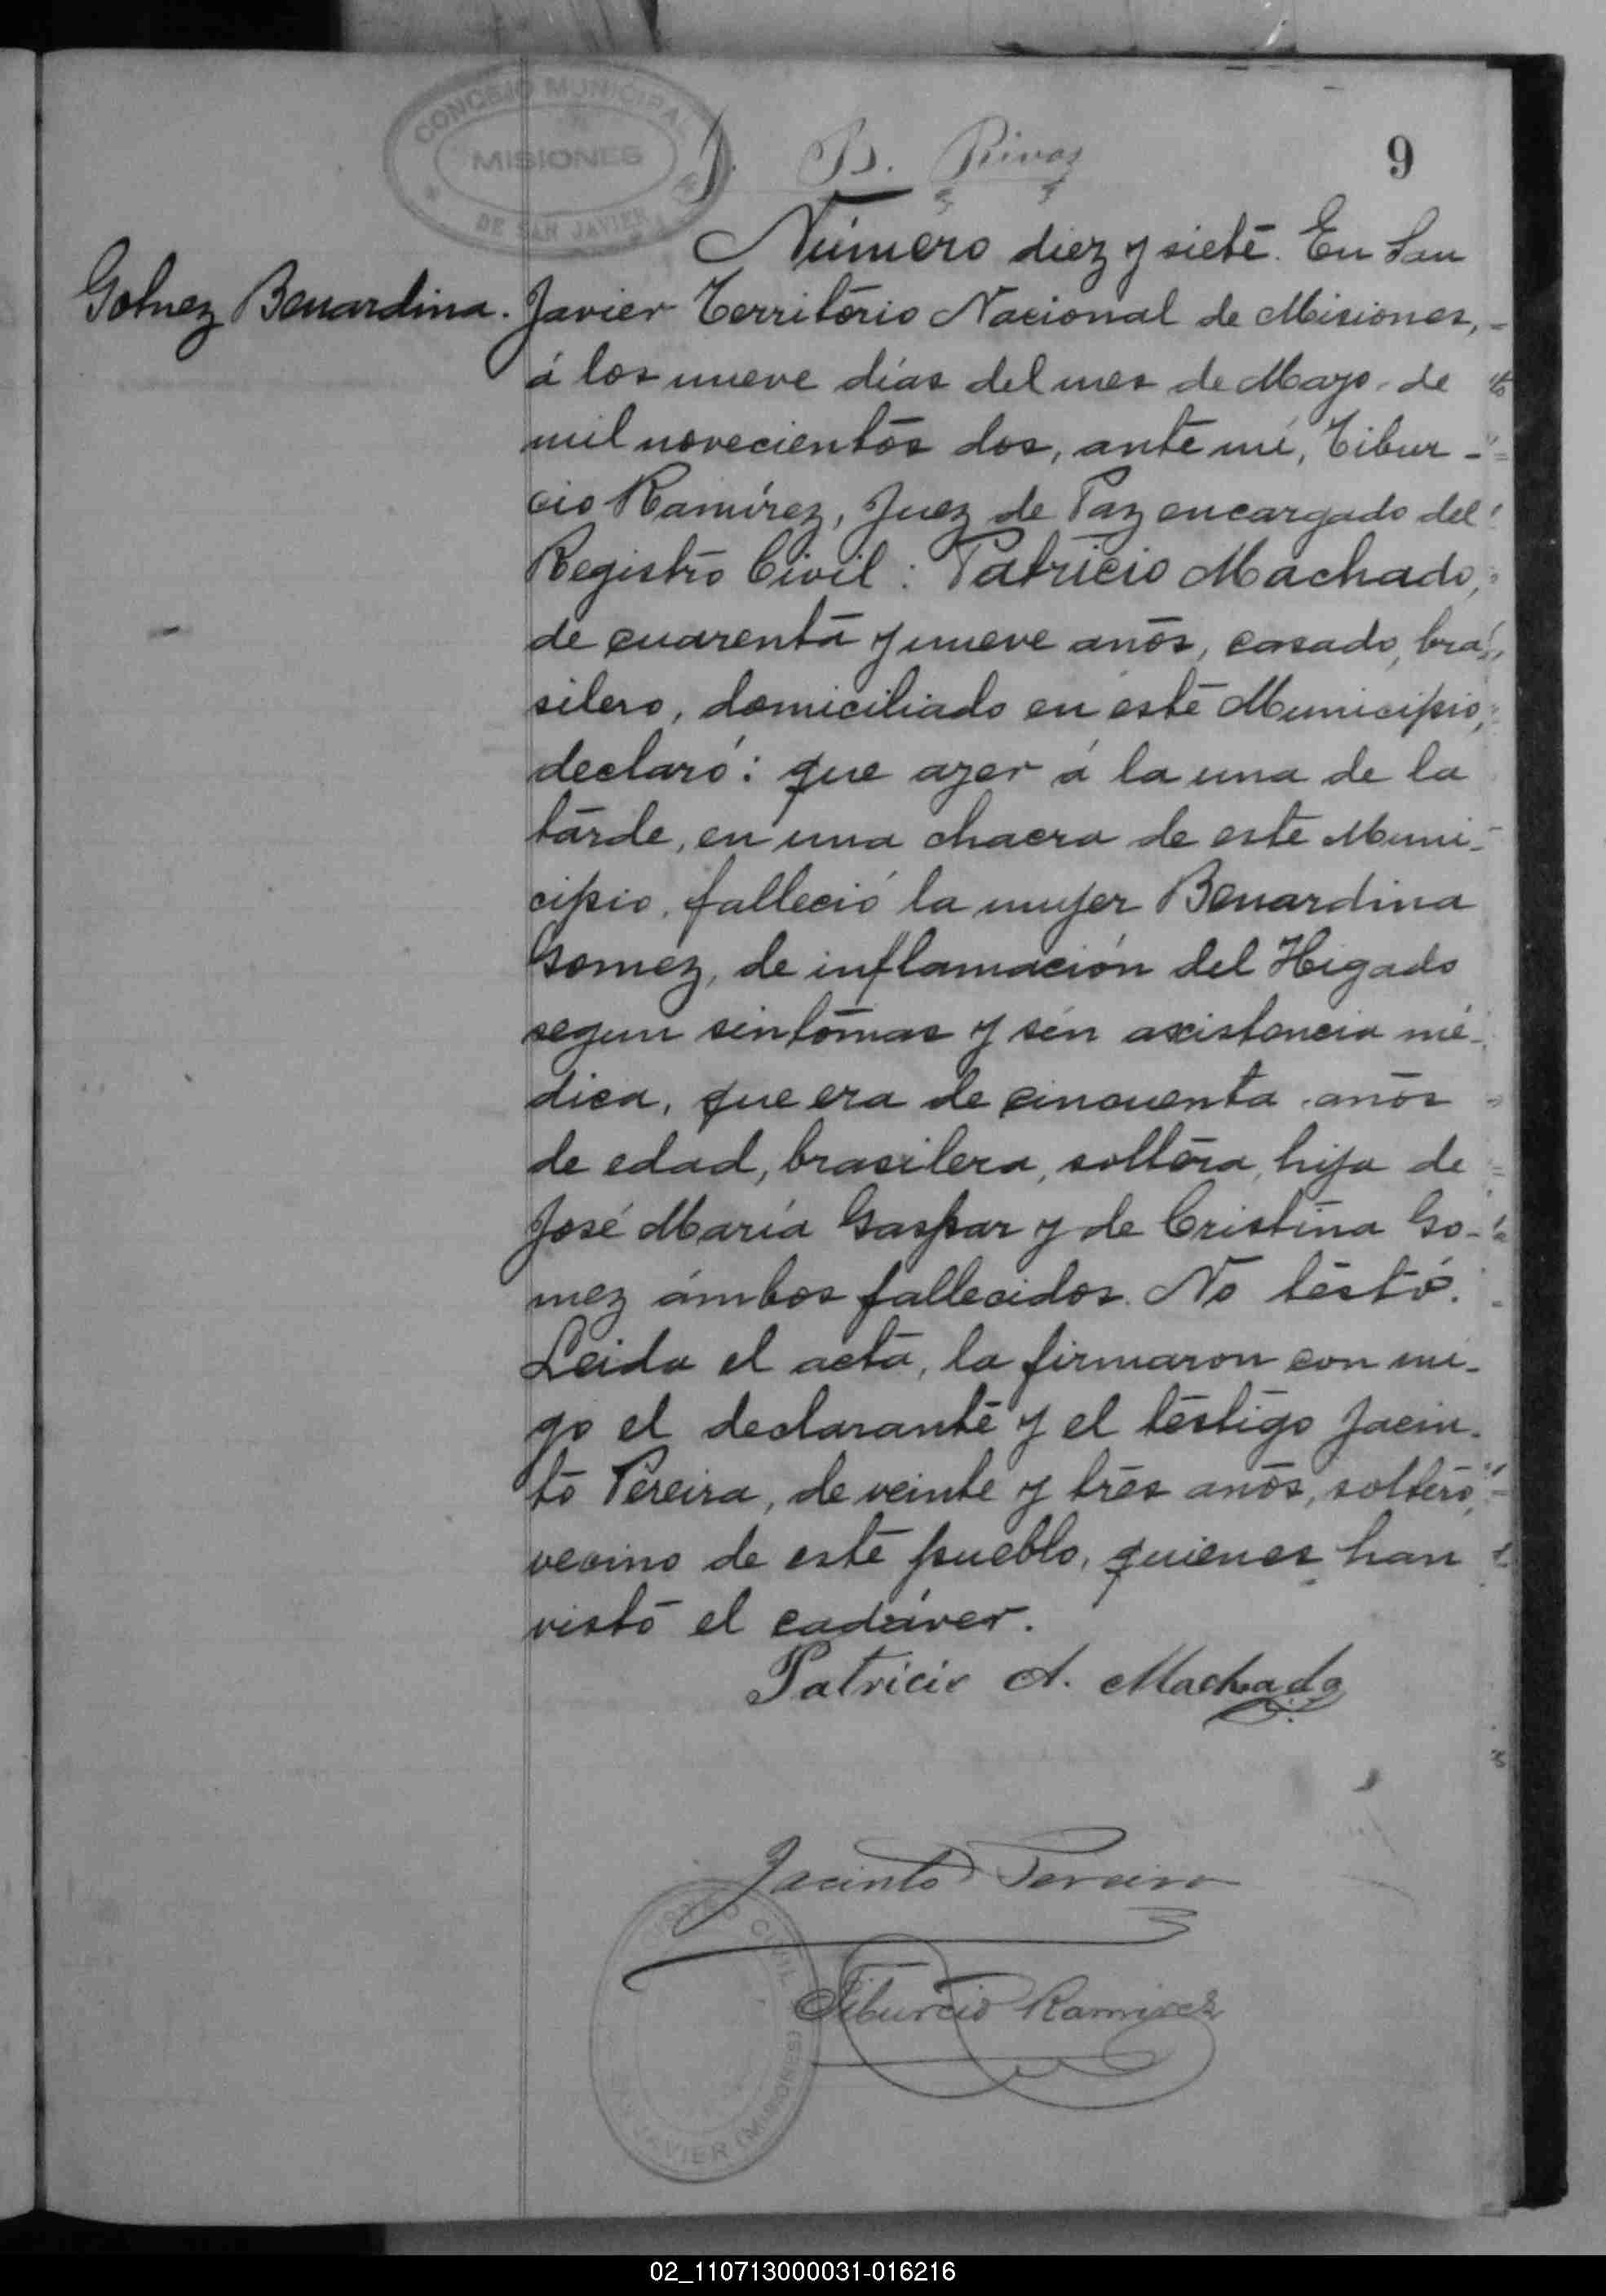 CONCEJO MUNICIPAL
MISIONES
DE SAN JAVIER
B. Rivas
9
Gomez Benardina.
Número diez y siete. En San
Javier Territorio Nacional de Misiones,
á los nueve días del mes de Mayo de
mil novecientos dos, ante mí, Tibur-
cio Ramírez, Juez de Paz encargado del
Registro Civil: Patricio Machado,
de cuarenta y nueve años, casado, bra-
silero, domiciliado en este Municipio,
declaró: que ayer á la una de la
tarde, en una chacra de este Muni-
cipio, falleció la mujer Benardina
Gomez, de inflamación del Higado
segun sintomas y sin axistencia mé-
dica, que era de cincuenta años
de edad, brasilera, soltera, hija de
José María Gaspar y de Cristina Go-
mez ámbos fallecidos. No testó.
Leida el acta, la firmaron con mi-
go el declarante y el testigo Jacin-
to Pereira, de veinte y tres años, soltero,
vecino de este pueblo, quienes han
visto el cadáver.
Patricio A. Machado
Jacinto Pereira
CIVIL
Tiburcio Ramirez
JAVIER (MISIONES)
02_110713000031-016216